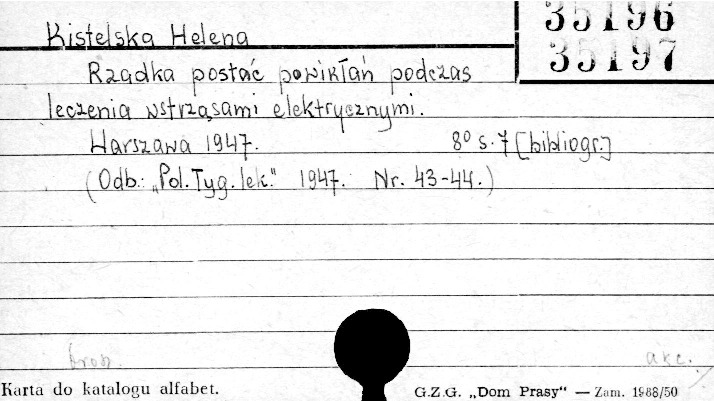 35196
35197
Kistelska Helena
Rządka postać powikłań podczas
leczenia wstrząsami elektrycznymi.
Warszawa 1947. 8º s. 7 [bibliogr.]
(Odb.: „Pol. Tyg. lek." 1947. Nr. 43-44.)
brosz. akc.
Karta do katalogu alfabet. G.Z.G. „Dom Prasy" — Zam. 1988/50